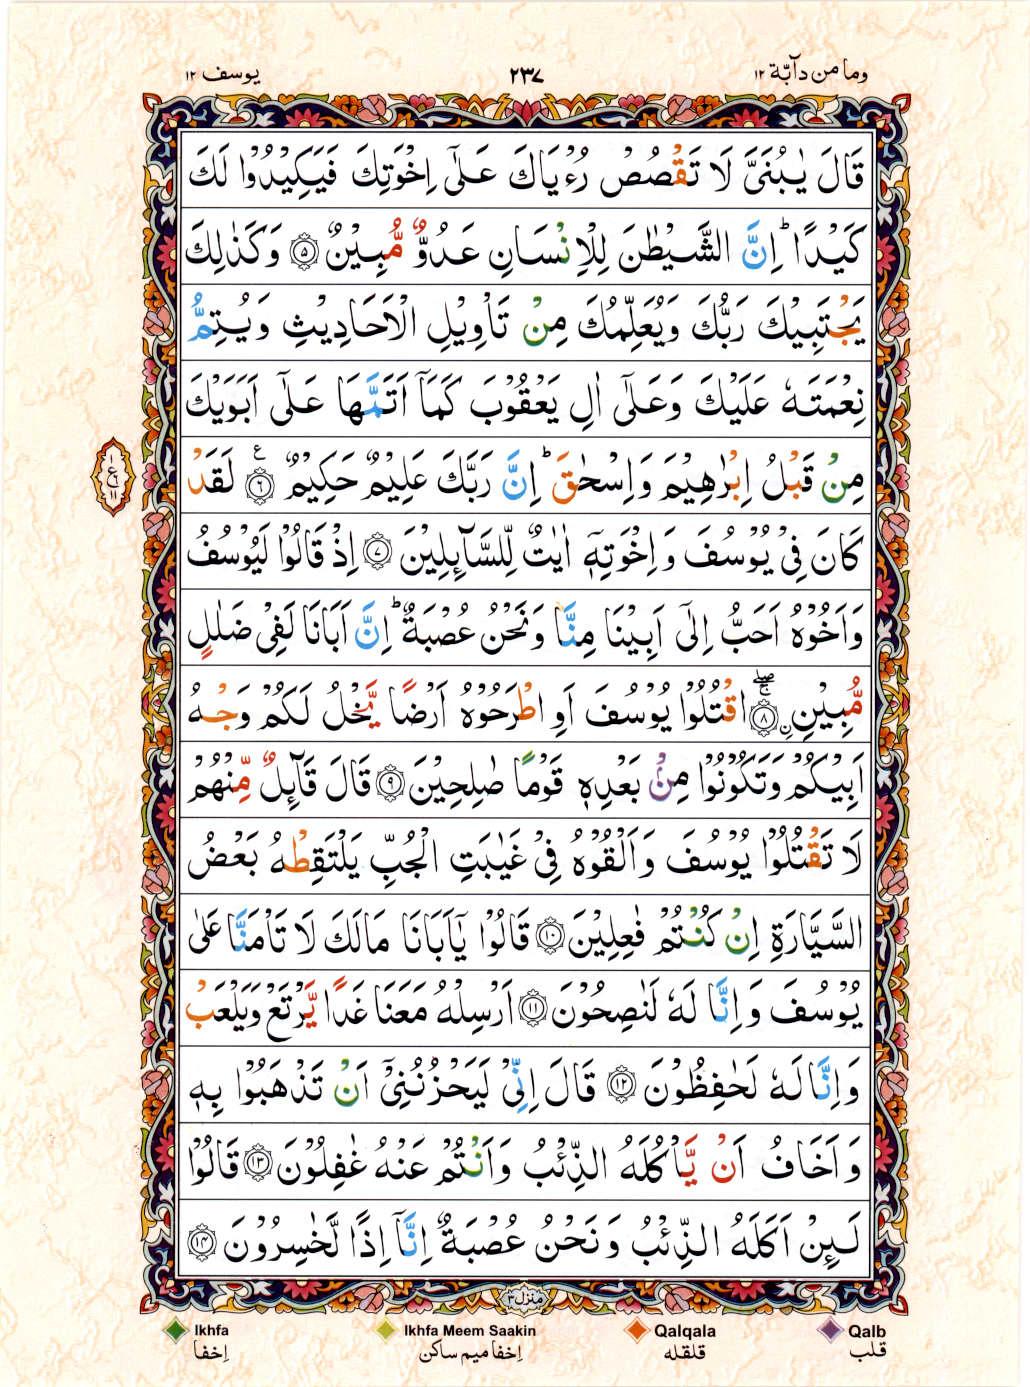 وما من دآبّة ١٢
٢٣٧
يوسف ١٢
قَالَ يٰبُنَىَّ لَا تَقْصُصْ رُءْيَاكَ عَلٰٓى اِخْوَتِكَ فَيَكِيْدُوْا لَكَ
كَيْدًا ؕ اِنَّ الشَّيْطٰنَ لِلْاِنْسَانِ عَدُوٌّ مُّبِيْنٌ ۝۵ وَكَذٰلِكَ
يَجْتَبِيْكَ رَبُّكَ وَيُعَلِّمُكَ مِنْ تَاْوِيْلِ الْاَحَادِيْثِ وَيُتِمُّ
نِعْمَتَهٗ عَلَيْكَ وَعَلٰٓى اٰلِ يَعْقُوْبَ كَمَاۤ اَتَمَّهَا عَلٰٓى اَبَوَيْكَ
مِنْ قَبْلُ اِبْرٰهِيْمَ وَاِسْحٰقَ ؕ اِنَّ رَبَّكَ عَلِيْمٌ حَكِيْمٌ ۝۶ لَقَدْ
كَانَ فِىْ يُوْسُفَ وَاِخْوَتِهٖۤ اٰيٰتٌ لِّلسَّآئِلِيْنَ ۝۷ اِذْ قَالُوْا لَيُوْسُفُ
وَاَخُوْهُ اَحَبُّ اِلٰٓى اَبِيْنَا مِنَّا وَنَحْنُ عُصْبَةٌ ؕ اِنَّ اَبَانَا لَفِىْ ضَلٰلٍ
مُّبِيْنِ ۝۸ ۙ اۨقْتُلُوْا يُوْسُفَ اَوِ اطْرَحُوْهُ اَرْضًا يَّخْلُ لَكُمْ وَجْهُ
اَبِيْكُمْ وَتَكُوْنُوْا مِنْۢ بَعْدِهٖ قَوْمًا صٰلِحِيْنَ ۝۹ قَالَ قَآئِلٌ مِّنْهُمْ
لَا تَقْتُلُوْا يُوْسُفَ وَاَلْقُوْهُ فِىْ غَيٰبَتِ الْجُبِّ يَلْتَقِطْهُ بَعْضُ
السَّيَّارَةِ اِنْ كُنْتُمْ فٰعِلِيْنَ ۝۱۰ قَالُوْا يٰۤاَبَانَا مَالَكَ لَا تَاْمَنَّا عَلٰى
يُوْسُفَ وَاِنَّا لَهٗ لَنٰصِحُوْنَ ۝۱۱ اَرْسِلْهُ مَعَنَا غَدًا يَّرْتَعْ وَيَلْعَبْ
وَاِنَّا لَهٗ لَحٰفِظُوْنَ ۝۱۲ قَالَ اِنِّىْ لَيَحْزُنُنِىْۤ اَنْ تَذْهَبُوْا بِهٖ
وَاَخَافُ اَنْ يَّاْكُلَهُ الذِّئْبُ وَاَنْتُمْ عَنْهُ غٰفِلُوْنَ ۝۱۳ قَالُوْا
لَئِنْ اَكَلَهُ الذِّئْبُ وَنَحْنُ عُصْبَةٌ اِنَّاۤ اِذًا لَّخٰسِرُوْنَ ۝۱۴
منزل ۳
Ikhfa Ikhfa Meem Saakin Qalqala Qalb
اِخفا اِخفا میم ساکن قلقله قلب